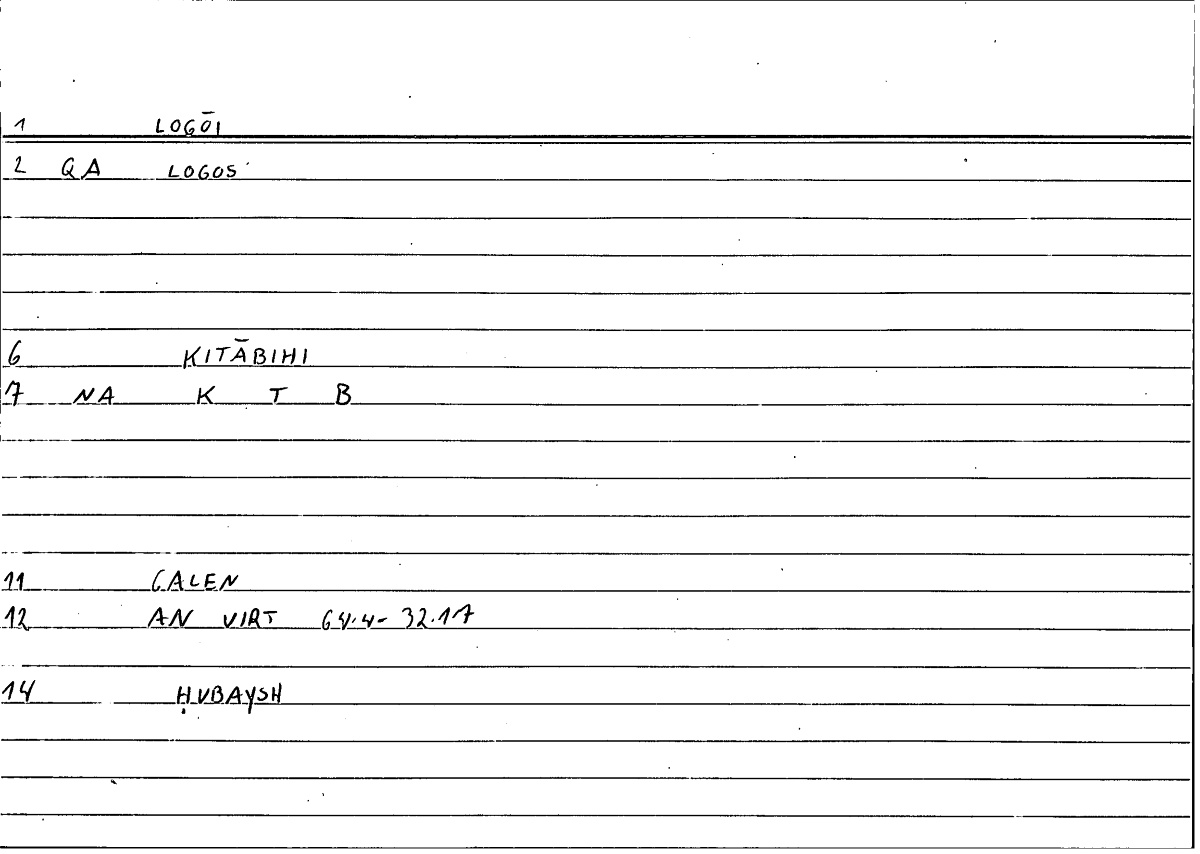 1 LOGŌI
2 QA LOGOS
6 KITĀBIHI
7 NA K T B
11 GALEN
12 AN VIRT 64.4-32.17
14 ḤUBAYSH